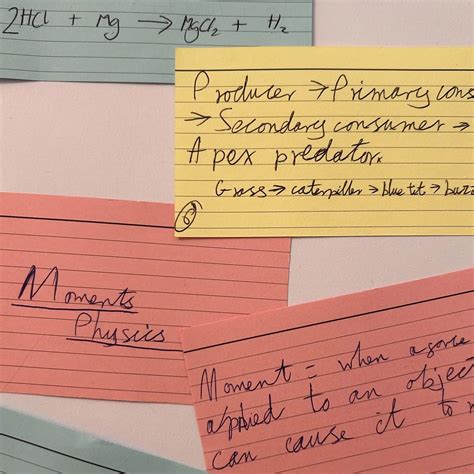 2HCl + Mg → MgCl2 + H2
Producer → Primary cons
→ Secondary consumer →
Apex predator.
Grass → caterpillar → blue tit → buzz
6
Moments
Physics
Moment = when a
applied to an objec
can cause it to